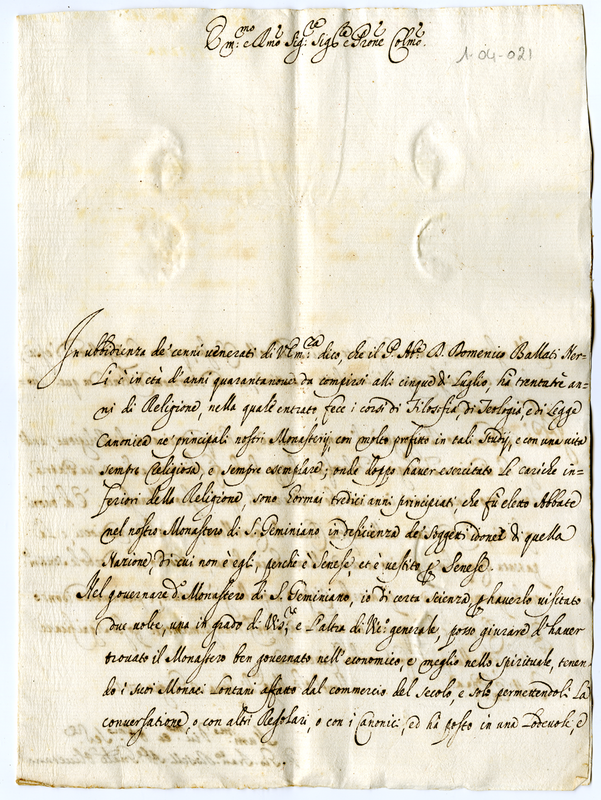 Em:mo e Rmo Sig:re Sig:re e Prone Colmo.
1-04-021
In ubbidienza de' cenni venerati di V Em:za dico, che il P. Abe D. Domenico Ballati Ner-
li è in età d'anni quarantanove da compirsi alli cinque di Luglio, ha trentatre an-
ni di Religione, nella quale entrato fece i corsi di Filosofia, di Teologia, e di Legge
Canonica ne' principali nostri Monasterij, con molto profitto in tali Studij, e con una vita
sempre Religiosa, e sempre esemplare; onde doppo haver esercitato le cariche in-
feriori della Religione, sono hormai tredici anni principiati, che fù eletto Abbate
nel nostro Monastero di S. Geminiano in deficienza de' soggetti idonei di quella
Nazione, di cui non è egli, perche è Senese, et è vestito p Senese.
Nel governare do Monastero di S. Geminiano, io di certa scienza p haverlo visitato
due volte, una in grado di Visre, e l'altra di Vico generale, posso giurare d'haver
trovato il Monastero ben governato nell'economico, e meglio nello spirituale, tenen-
do i suoi Monaci lontani affatto dal commercio del secolo, e solo permettendoli la
conversatione, o con altri Regolari, o con i Canonici, ed ha posto in una lodevole, e